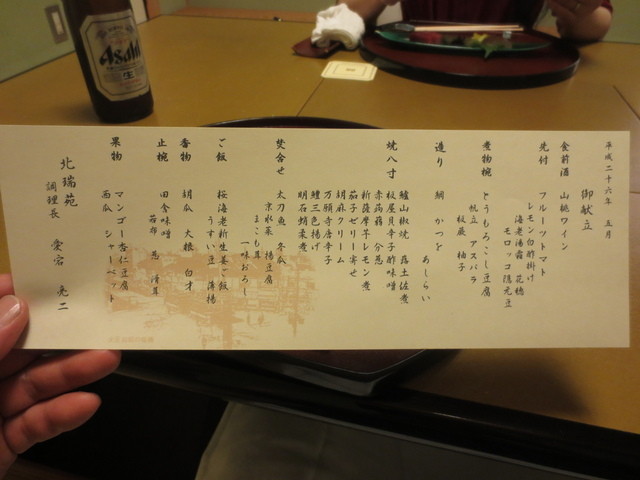 平成二十六年 五月
御献立
食前酒 山桃ワイン
先付 フルーツトマト
レモン白酢掛け
海老湯霜 花穂
モロッコ隠元豆
煮物椀 とうもろこし豆腐
帆立 アスパラ
松蕨 柚子
造り 鯛 かつを あしらい
焼八寸 鱸山椒焼 蕗土佐煮
板屋貝辛子酢味噌
赤蒟蒻
新薩摩芋レモン煮
茄子ゼリー寄せ
胡麻クリーム
万願寺唐辛子
鱧三色揚げ
明石蛸柔煮
焚合せ 太刀魚 冬瓜
京水菜 揚豆腐
まこも茸
一味おろし
ご飯 桜海老新生姜ご飯
うすい豆 薄揚
香物 胡瓜 大根 白才
止椀 田舎味噌
葱 滑茸
果物 マンゴー杏仁豆腐
西瓜 シャーベット
北瑞苑
調理長 愛宕 亮二
Asahi
生